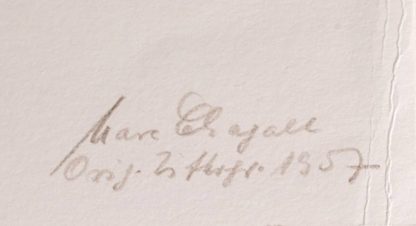 Marc Chagall
Orig. Lithogr. 1957